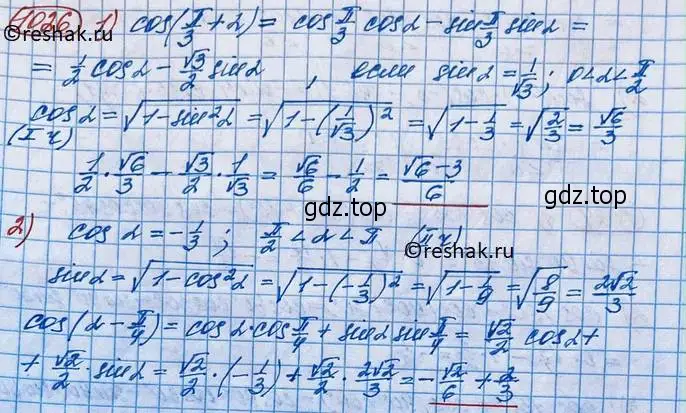 1026 1) cos(π/3 + α) = cos π/3 cos α - sin π/3 sin α =
= 1/2 cos α - √3/2 sin α , если sin α = 1/√3 ; 0 < α < π/2
cos α = √(1 - sin²α) = √(1 - (1/√3)²) = √(1 - 1/3) = √(2/3) = √6/3
(I ч)
1/2 · √6/3 - √3/2 · 1/√3 = √6/6 - 1/2 = (√6 - 3)/6
gdz.top gdz.top
2) cos α = -1/3 ; π/2 < α < π (II ч)
©reshak.ru ©reshak.ru
sin α = √(1 - cos²α) = √(1 - (-1/3)²) = √(1 - 1/9) = √(8/9) = 2√2/3
cos(α - π/4) = cos α · cos π/4 + sin α sin π/4 = √2/2 cos α +
+ √2/2 · sin α = √2/2 · (-1/3) + √2/2 · 2√2/3 = -√2/6 + 2/3